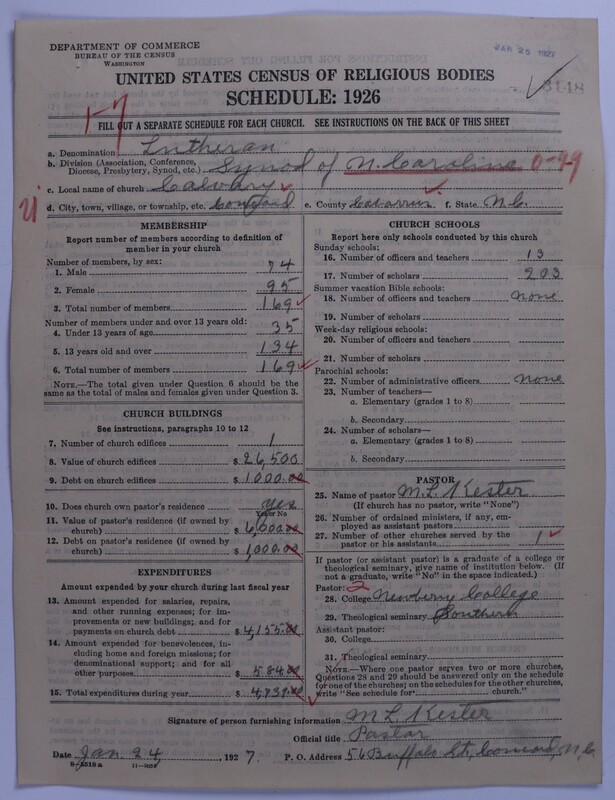 DEPARTMENT OF COMMERCE
BUREAU OF THE CENSUS
WASHINGTON
JAN 25 1927
UNITED STATES CENSUS OF RELIGIOUS BODIES
SCHEDULE: 1926
17
FILL OUT A SEPARATE SCHEDULE FOR EACH CHURCH. SEE INSTRUCTIONS ON THE BACK OF THIS SHEET
a. Denomination Lutheran
b. Division (Association, Conference, Diocese, Presbytery, Synod, etc.) Synod of N. Carolina 0-99
c. Local name of church Calvary
d. City, town, village, or township, etc. Concord e. County Cabarrus f. State N.C.
MEMBERSHIP
Report number of members according to definition of member in your church
Number of members, by sex:
1. Male 74
2. Female 95
3. Total number of members 169
Number of members under and over 13 years old:
4. Under 13 years of age 35
5. 13 years old and over 134
6. Total number of members 169
NOTE.—The total given under Question 6 should be the same as the total of males and females given under Question 3.
CHURCH BUILDINGS
See instructions, paragraphs 10 to 12
7. Number of church edifices 1
8. Value of church edifices $26,500
9. Debt on church edifices $1000.00
10. Does church own pastor's residence yes
Yes or No
11. Value of pastor's residence (if owned by church) $6,000.00
12. Debt on pastor's residence (if owned by church) $1,000.00
EXPENDITURES
Amount expended by your church during last fiscal year
13. Amount expended for salaries, repairs, and other running expenses; for improvements or new buildings; and for payments on church debt $4,155.00
14. Amount expended for benevolences, including home and foreign missions; for denominational support; and for all other purposes $584.00
15. Total expenditures during year $4,739.00
CHURCH SCHOOLS
Report here only schools conducted by this church
Sunday schools:
16. Number of officers and teachers 13
17. Number of scholars 203
Summer vacation Bible schools:
18. Number of officers and teachers none
19. Number of scholars
Week-day religious schools:
20. Number of officers and teachers
21. Number of scholars
Parochial schools:
22. Number of administrative officers none
23. Number of teachers—
a. Elementary (grades 1 to 8)
b. Secondary
24. Number of scholars—
a. Elementary (grades 1 to 8)
b. Secondary
PASTOR
25. Name of pastor M. L. Kester
(If church has no pastor, write "None")
26. Number of ordained ministers, if any, employed as assistant pastors
27. Number of other churches served by the pastor or his assistants 1
If pastor (or assistant pastor) is a graduate of a college or theological seminary, give name of institution below. (If not a graduate, write "No" in the space indicated.)
Pastor: 2
28. College Newberry College
29. Theological seminary Southern
Assistant pastor:
30. College
31. Theological seminary
NOTE.—Where one pastor serves two or more churches, Questions 28 and 29 should be answered only on the schedule for one of the churches; on the schedules for the other churches, write "See schedule for church."
Signature of person furnishing information M. L. Kester
Official title Pastor
Date Jan. 24, 1927. P. O. Address 56 Buffalo St., Concord, N.C.
8-5518 a